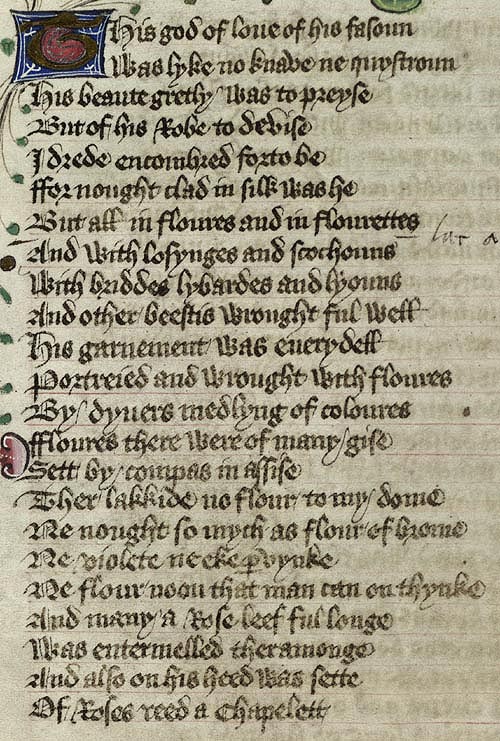 This god of loue of his fasoun
Was lyke no knave ne quystroun
His beaute gretly was to preyse
But of his Robe to devise
I drede encombred forto be
Ffor nought clad in silk was he
But all in floures and in flourettes
And with losynges and scochouns
With briddes lybardes and lyouns
And other beestis wrought ful well
His garnement was euerydell
Portreied and wrought with floures
By dyuers medlyng of coloures
Ffloures there were of many gise
Sett by compas in assise
Ther lakkide no flour to my dome
Ne nought so mych as flour of brome
Ne violete ne eke pervynke
Ne flour noon that man can on thynke
And many a Rose leef ful longe
Was entermelled theramonge
And also on his heed was sette
Of Roses reed a Chapelett